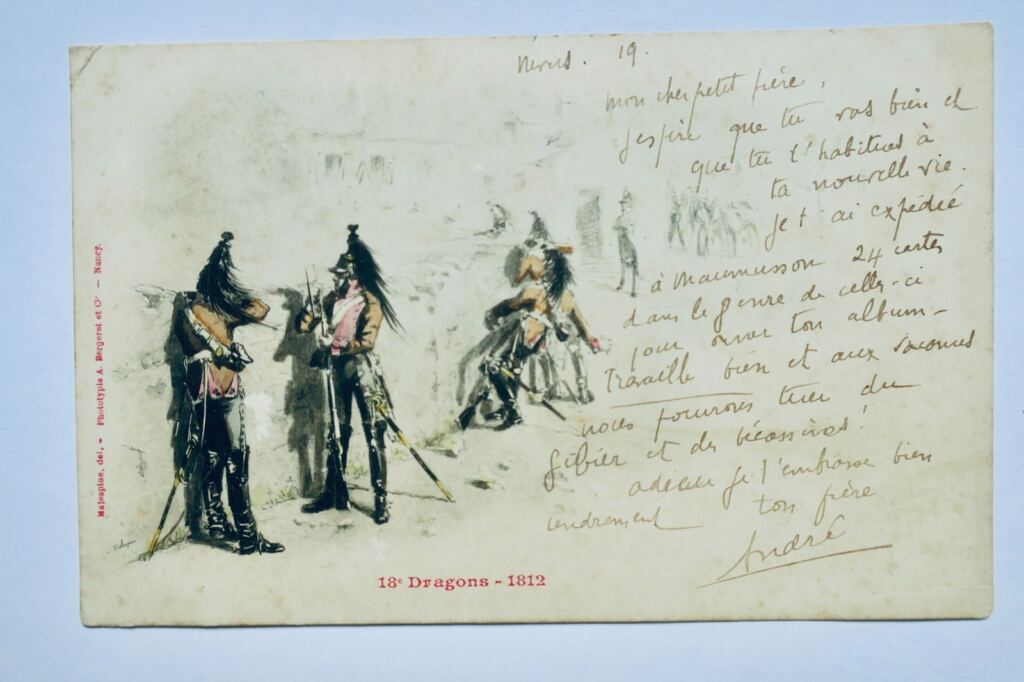 Nevers. 19.
Mon cher petit frère,
J'espère que tu vas bien et
que tu t'habitues à
ta nouvelle vie.
Je t'ai expédié
à Maumusson 24 cartes
dans le genre de celle-ci
pour orner ton album -
Travaille bien et aux vacances
nous pourrons tuer du
gibier et des bécassines!
adieu je t'embrasse bien
tendrement ton frère
André
Malespine, del. - Phototypie A. Bergeret et Cie — Nancy.
18e Dragons - 1812